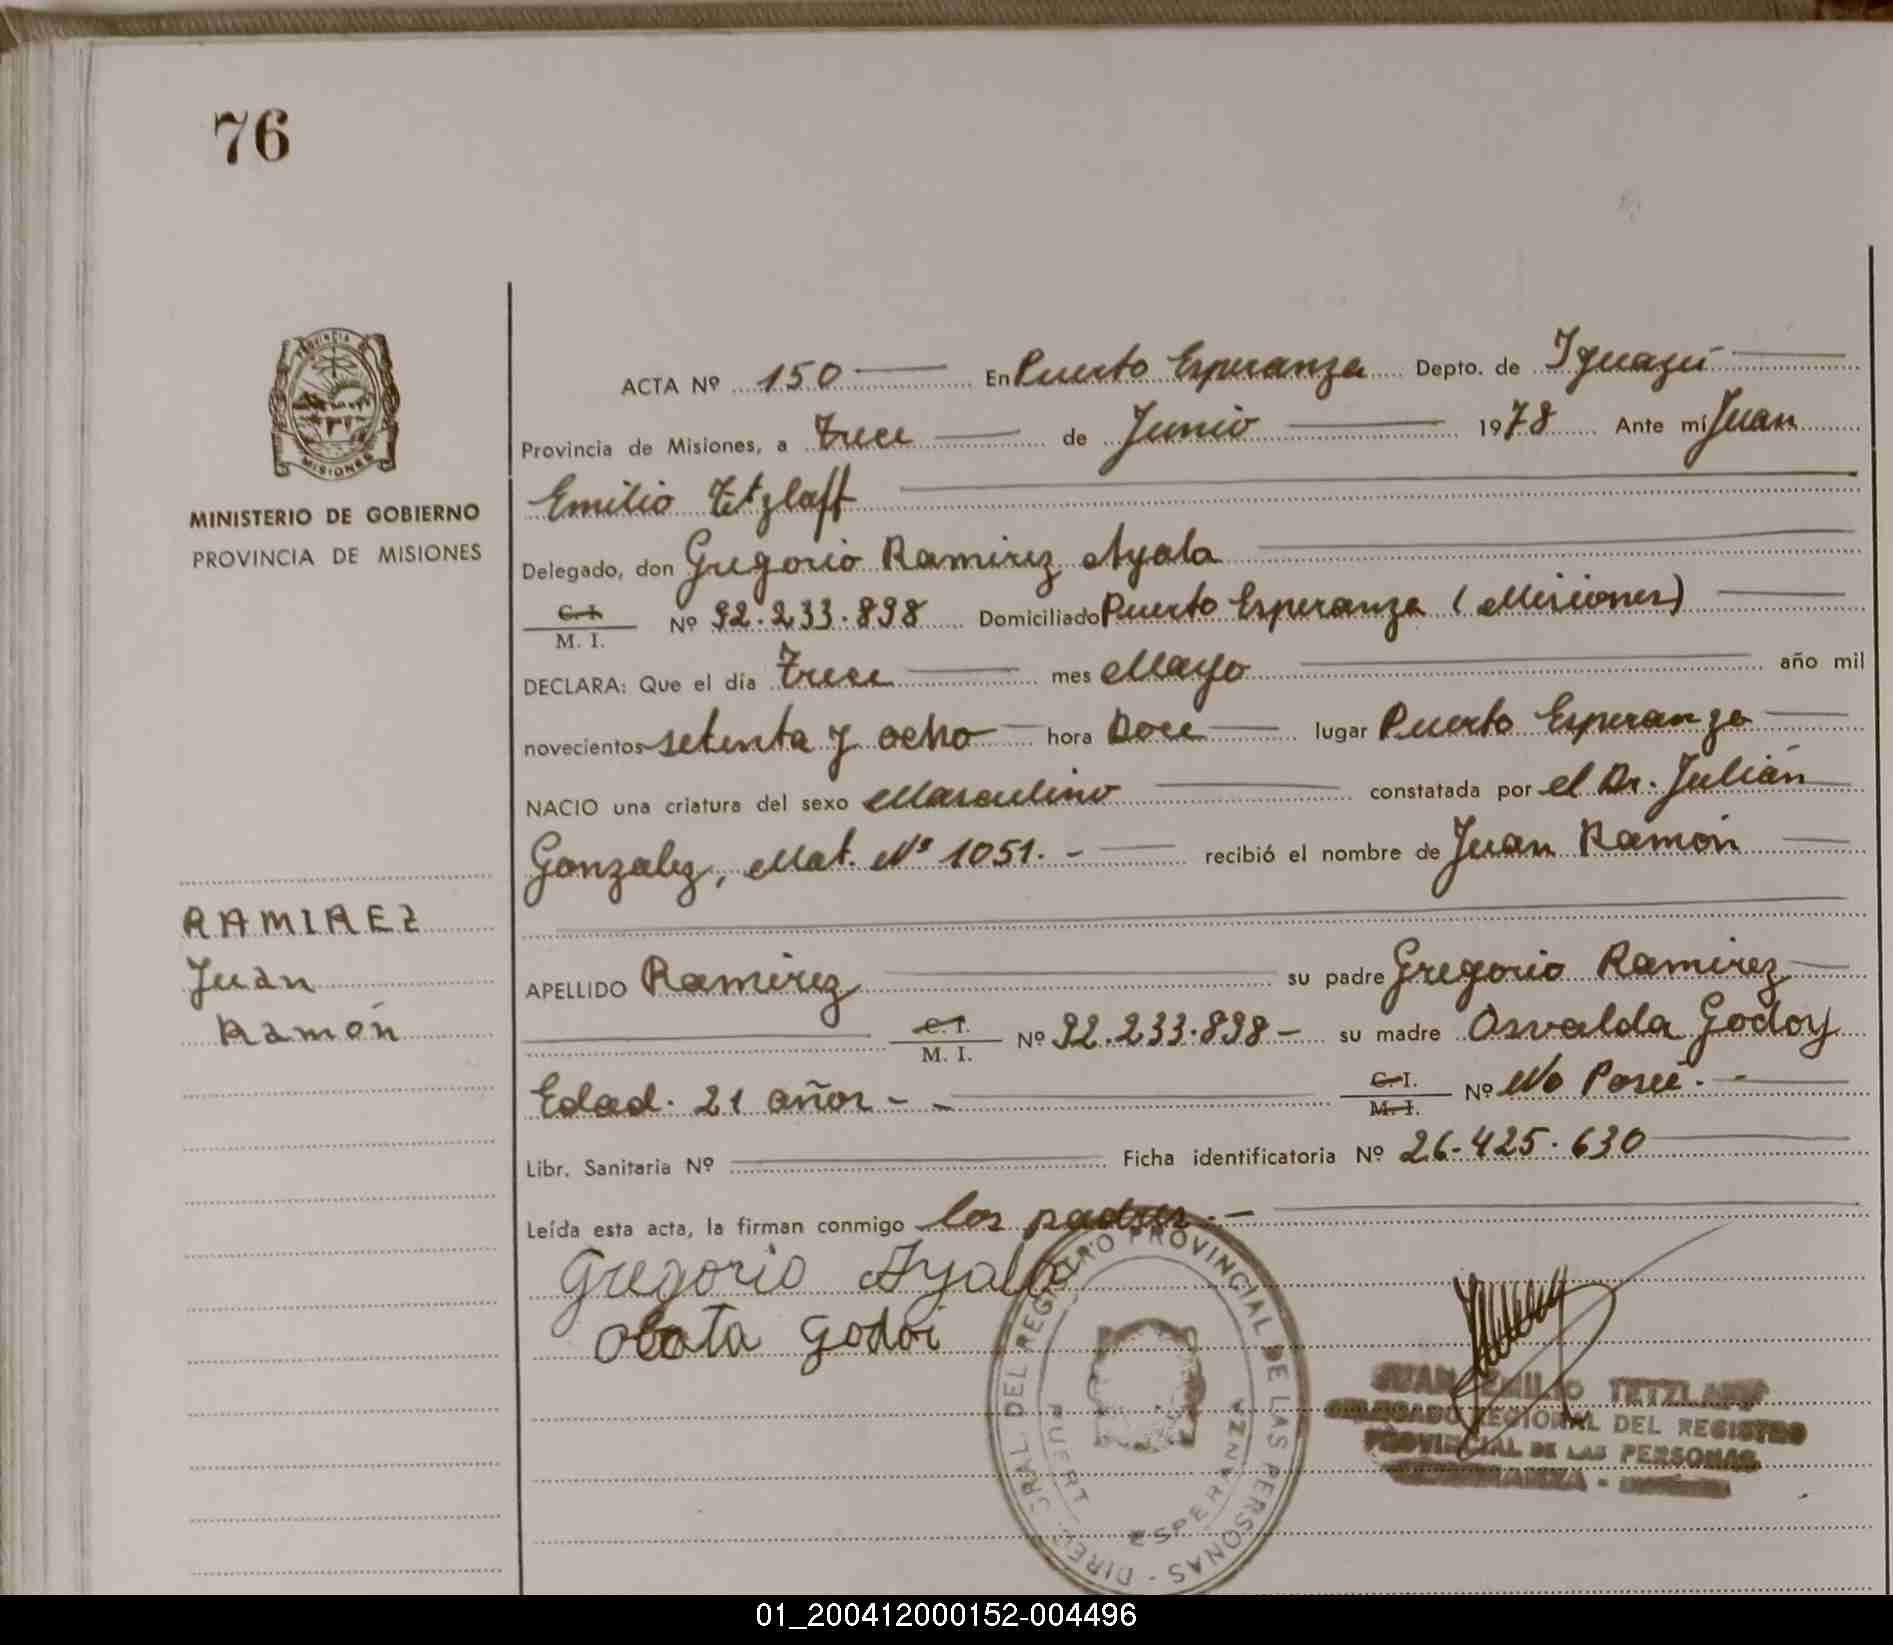 76
PROVINCIA DE
MISIONES
MINISTERIO DE GOBIERNO
PROVINCIA DE MISIONES
RAMIREZ
Juan
Ramón
ACTA Nº 150 En Puerto Esperanza Depto. de Iguazú
Provincia de Misiones, a Trece de Junio 1978 Ante mí Juan
Emilio Tetzlaff
Delegado, don Gregorio Ramirez Ayala
C. I.
M. I. Nº 92.233.898 Domiciliado Puerto Esperanza (Misiones)
DECLARA: Que el día Trece mes Mayo año mil
novecientos setenta y ocho hora Doce lugar Puerto Esperanza
NACIO una criatura del sexo Masculino constatada por el Dr. Julián
Gonzalez, Mat. Nº 1051.- recibió el nombre de Juan Ramón
APELLIDO Ramirez su padre Gregorio Ramirez
C. I.
M. I. Nº 92.233.898- su madre Osvalda Godoy
Edad. 21 años - - C. I.
M. I. Nº No Posee.-
Libr. Sanitaria Nº Ficha identificatoria Nº 26.425.630
Leída esta acta, la firman conmigo los padres.-
Gregorio Ayala
Godoi
DIREC. GRAL. DEL REGISTRO PROVINCIAL DE LAS PERSONAS -
PUERT ESPERANZA
JUAN EMILIO TETZLAFF
DELEGADO REGIONAL DEL REGISTRO
PROVINCIAL DE LAS PERSONAS
01_200412000152-004496